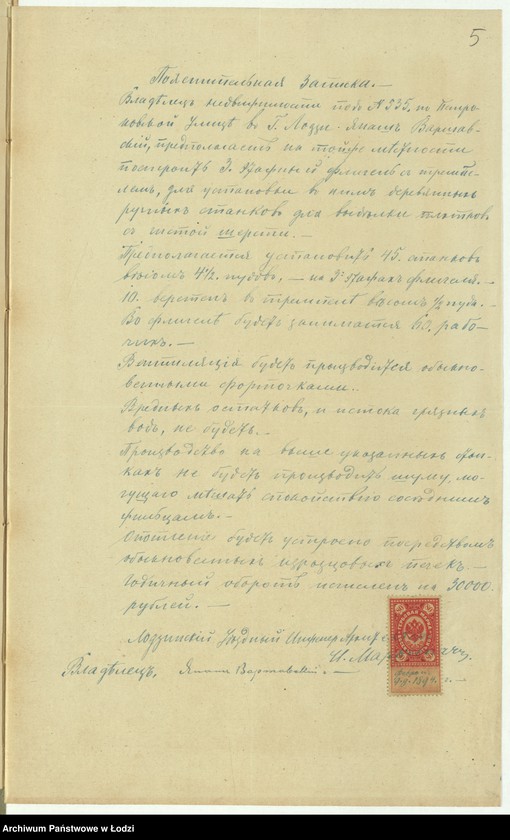 5
Пояснительная Записка. —
Владѣлецъ недвижимости подъ № 335, по Петро-
ковской Улицѣ въ Г. Лодзи Варшав-
скій, предполагаетъ на той же мѣстности
построить 3. Этажный флигель съ
для установки въ нихъ деревянныхъ
ручныхъ станковъ для выдѣлки платковъ
съ чистой шерсти. —
Предполагается установить 45. станковъ
вѣсомъ 4½. пудовъ, — на 3х этажахъ флигеля. —
10. веретенъ въ вѣсомъ ½ пуда. —
Во флигелѣ будетъ заниматся 60. рабо-
чихъ. —
Вентиляція будетъ производится обыкно-
венными форточками.
Вредныхъ остатковъ, и истока грязныхъ
водъ, не будетъ. —
Производство на выше указанныхъ стан-
кахъ не будетъ производить шуму, мо-
гущаго мѣшать спокойствію сосѣднимъ
жильцамъ. —
Отопленіе будетъ устроено посредствомъ
обыкновенныхъ изразцовыхъ печекъ. —
Годичный оборотъ исчисленъ на 30000.
рублей. —
Лодзинскій Уѣздный Инженеръ
Владѣлецъ. Варшавскій. —
Archiwum Państwowe w Łodzi